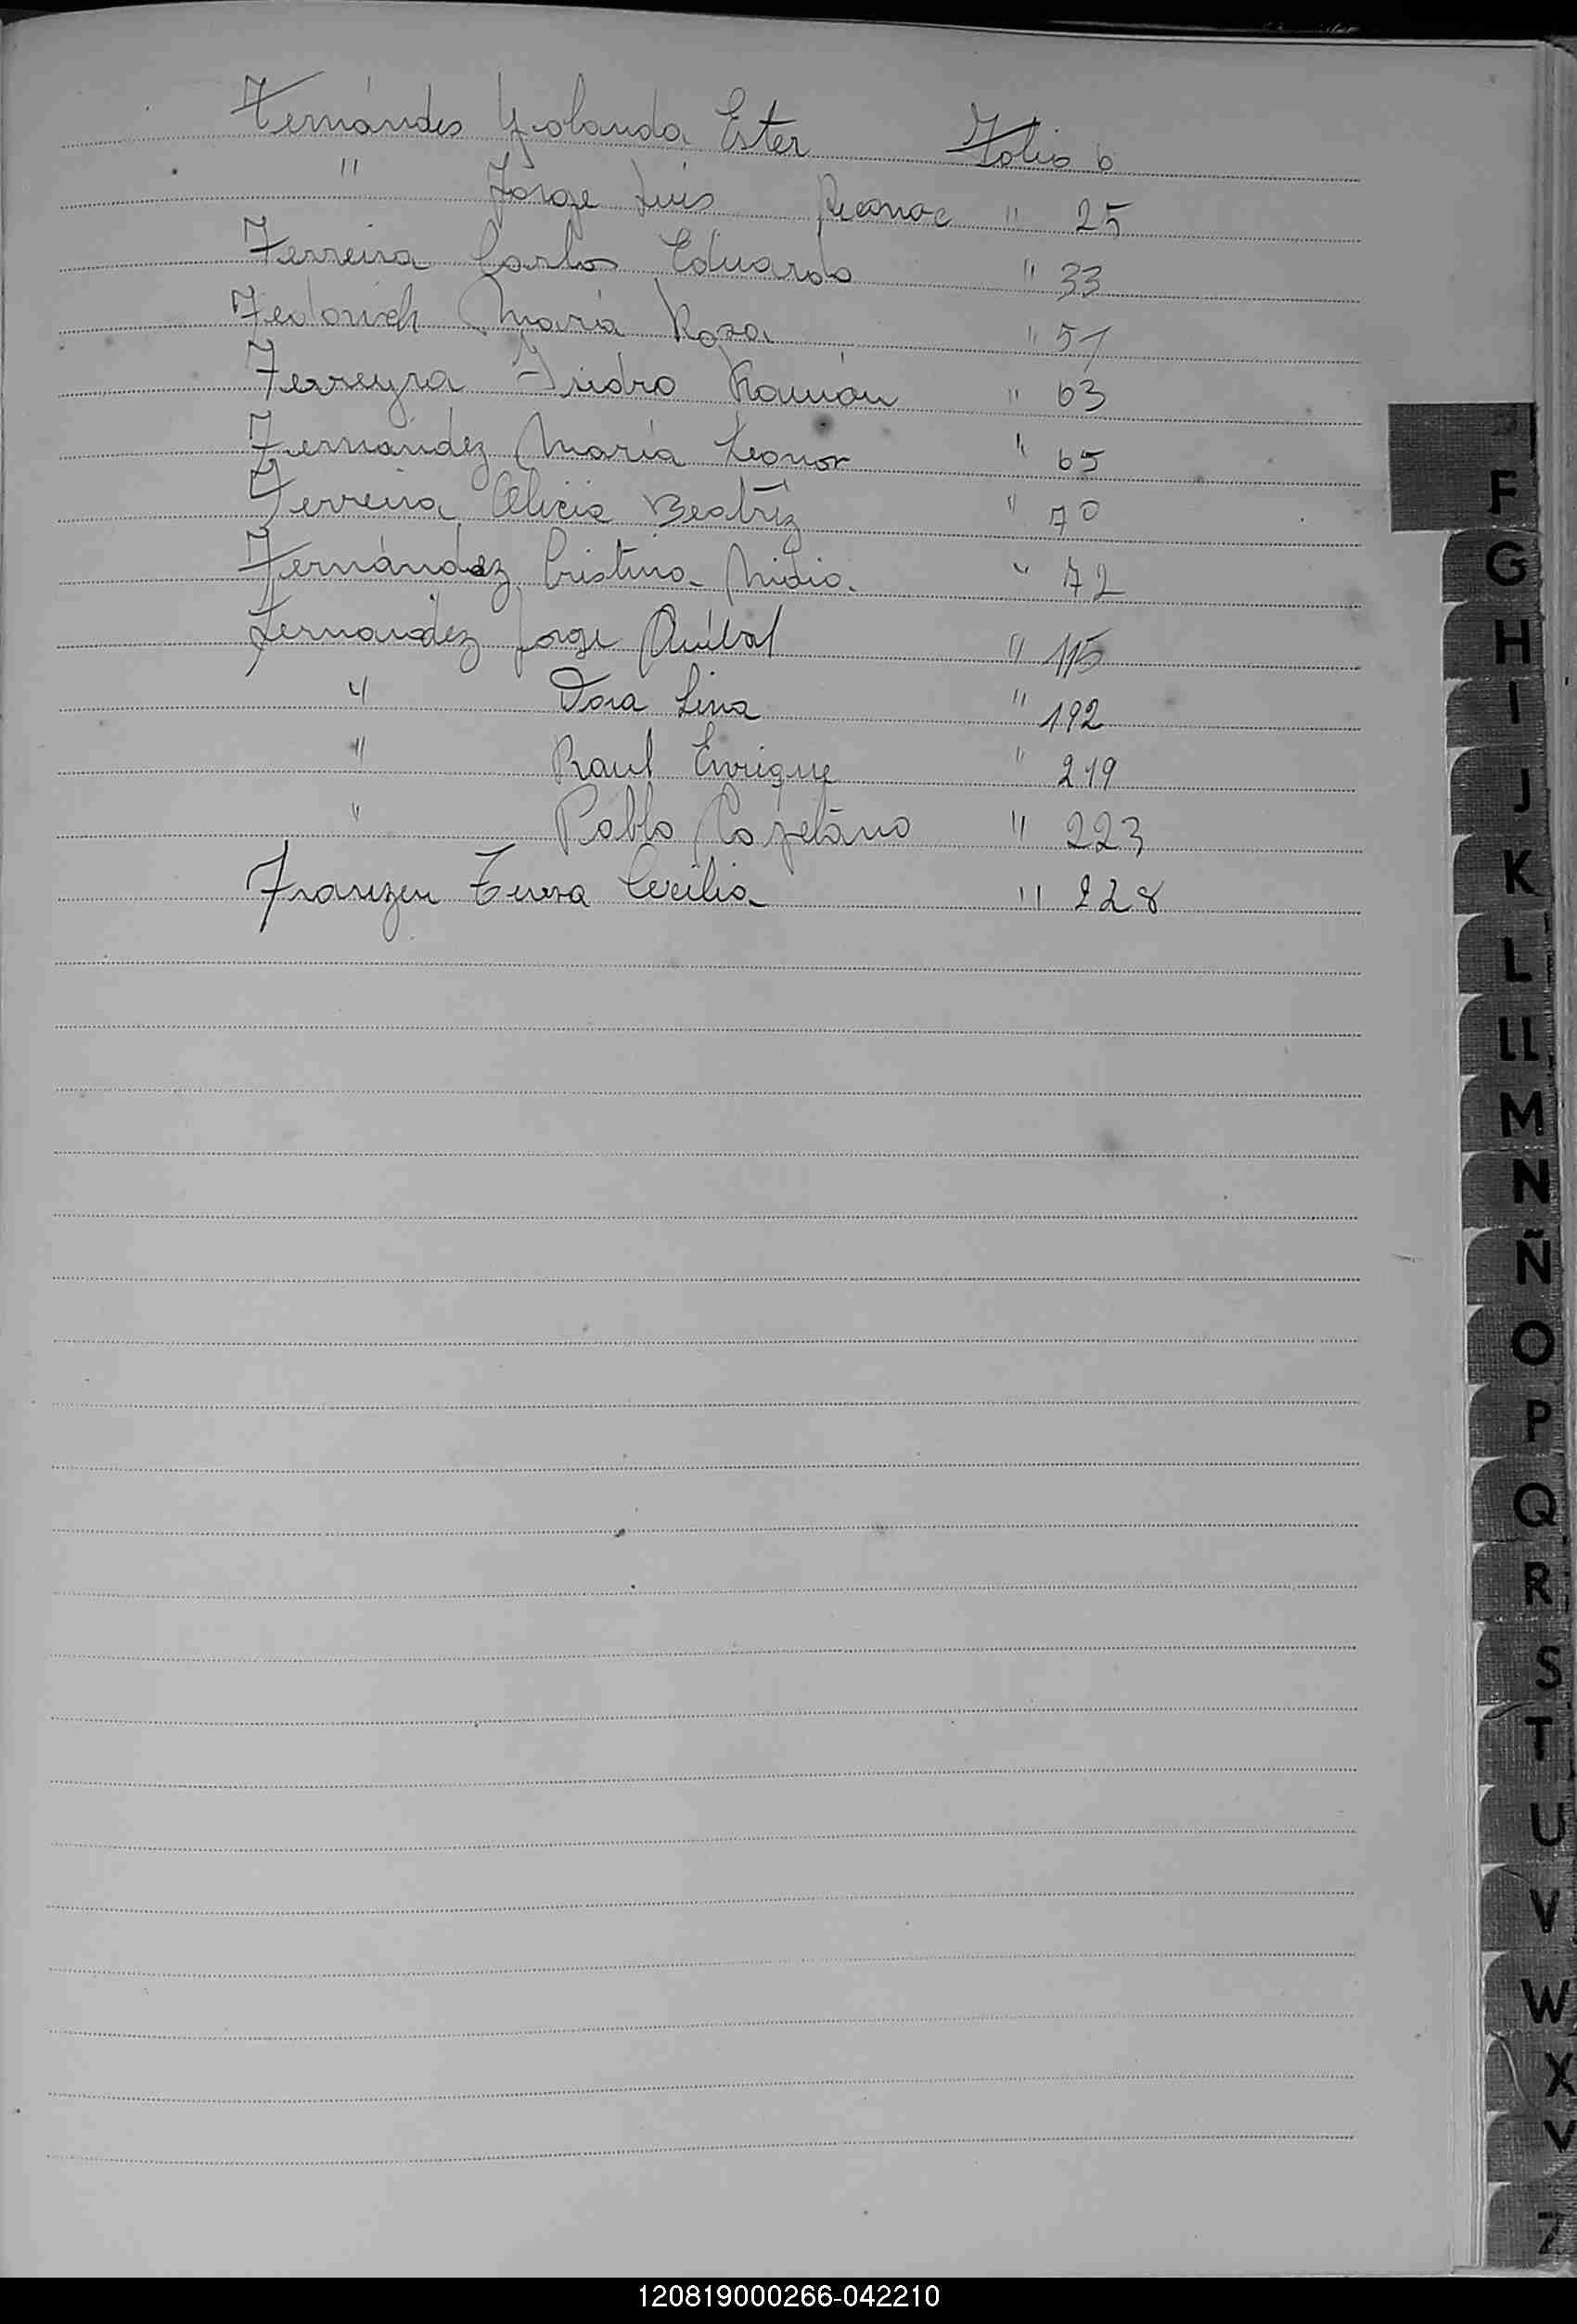 Fernándes Yrolanda Ester Folio 6
" Jorge Luis " 25
Ferreira Carlos Eduardo " 33
Fedorisch María Rosa " 51
Ferreyra Isidro Ramón " 63
Fernandez María Leonor " 65
Ferreira Alicia Beatríz " 70
Fernández Cristina Nidia " 72
Fernandez Jorge Aníbal " 115
" Dora Lina " 192
" Raul Enrique " 219
" Pablo Cayetano " 223
Franzen Teresa Cecilia " 228
F
G
H
I
J
K
L
Ll
M
N
Ñ
O
P
Q
R
S
T
U
V
W
X
Y
Z
120819000266-042210